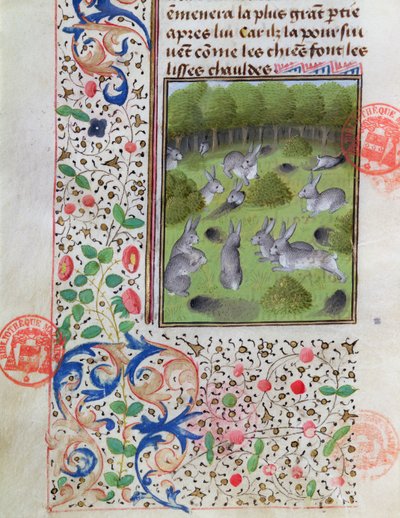 emenera la plus grãt ptie
apres lui Car ilz la poursui
uent cõme les chiens font les
lisses chauldes
BIBLIOTHEQUE
BIBLIOTHEQUE MA